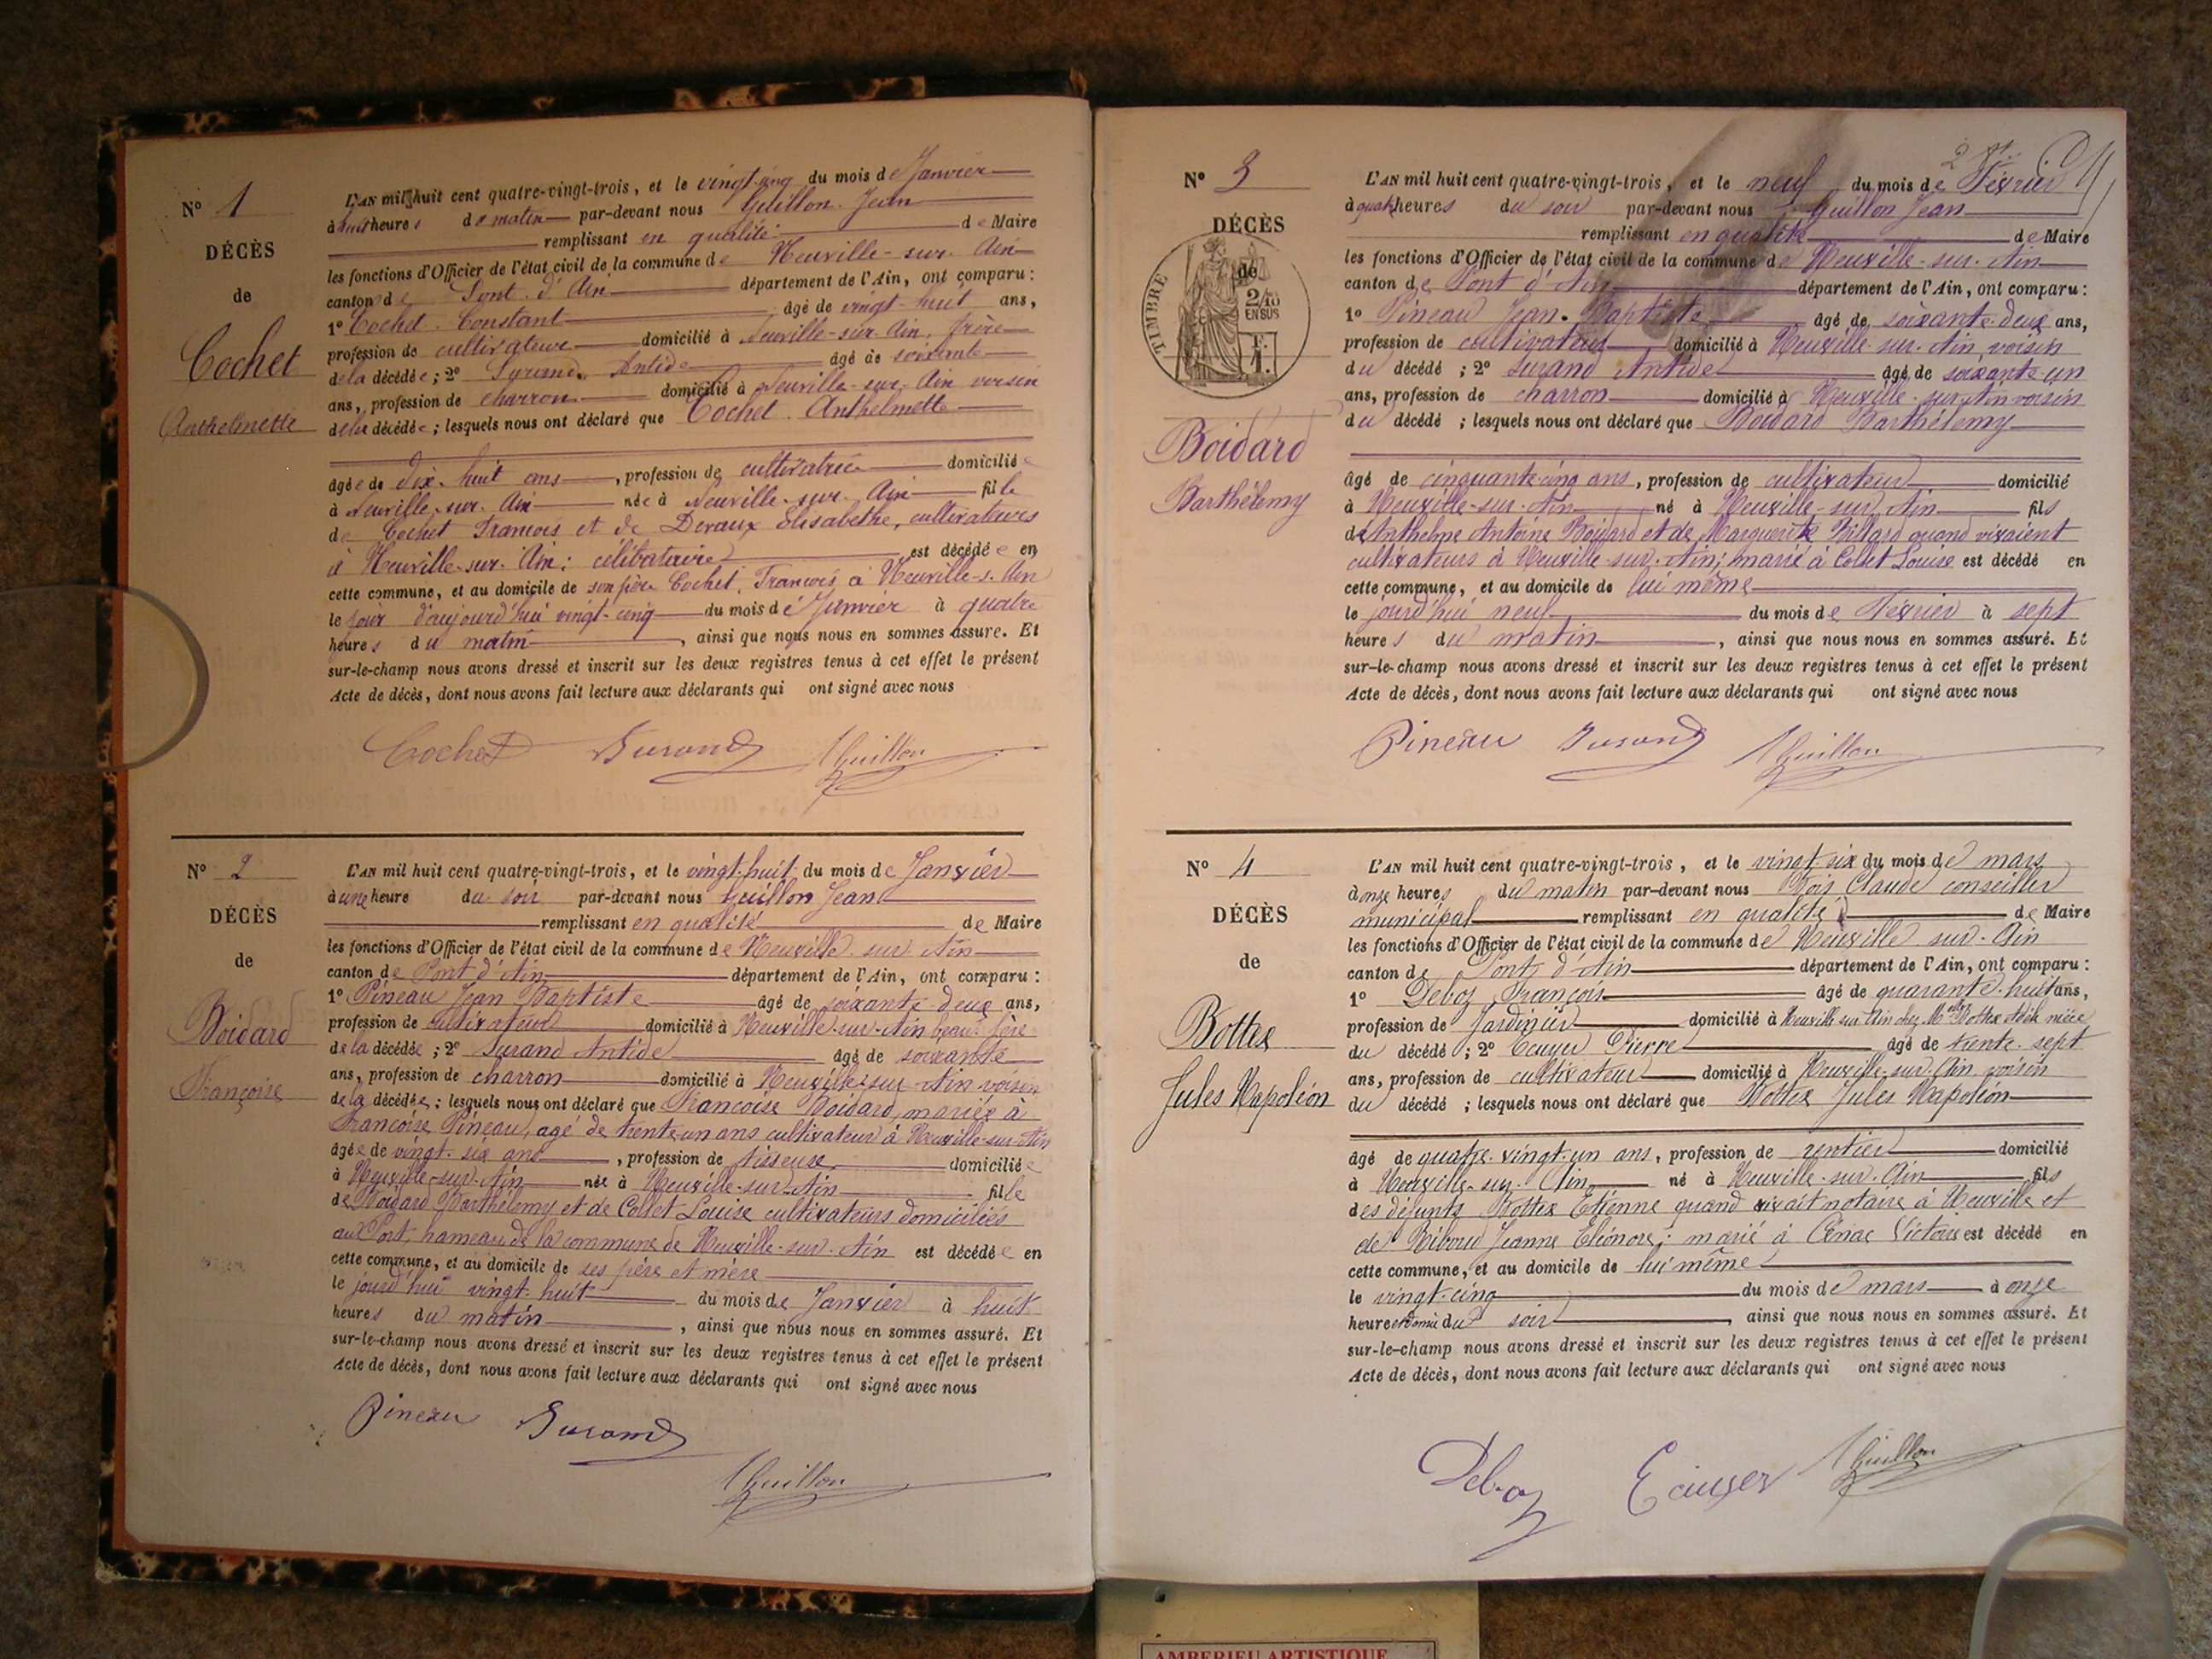 N° 1
DÉCÈS
de
Cochet
Anthelmette
L'AN mil huit cent quatre-vingt-trois, et le vingt-cinq du mois de Janvier
à huit heures du matin par-devant nous Guillon Jean
remplissant en qualité de Maire
les fonctions d'Officier de l'état civil de la commune de Neuville-sur-Ain
canton de Pont d'Ain département de l'Ain, ont comparu :
1° Cochet Constant âgé de vingt-huit ans,
profession de cultivateur domicilié à Neuville-sur-Ain, frère
de la décédée ; 2° Durand Antide âgé de soixante
ans, profession de charron domicilié à Neuville-sur-Ain voisin
de la décédée ; lesquels nous ont déclaré que Cochet Anthelmette
âgée de dix-huit ans, profession de cultivatrice domiciliée
à Neuville-sur-Ain née à Neuville-sur-Ain fille
de Cochet François et de Devaux Elisabethe, cultivateurs
à Neuville-sur-Ain; célibataire est décédée en
cette commune, et au domicile de son père Cochet François à Neuville-s-Ain
le jour d'aujourd'hui vingt-cinq du mois de Janvier à quatre
heures du matin, ainsi que nous nous en sommes assuré. Et
sur-le-champ nous avons dressé et inscrit sur les deux registres tenus à cet effet le présent
Acte de décès, dont nous avons fait lecture aux déclarants qui ont signé avec nous
Cochet Durand JGuillon
N° 2
DÉCÈS
de
Boidard
Françoise
L'AN mil huit cent quatre-vingt-trois, et le vingt-huit du mois de Janvier
à une heure du soir par-devant nous Guillon Jean
remplissant en qualité de Maire
les fonctions d'Officier de l'état civil de la commune de Neuville-sur-Ain
canton de Pont d'Ain département de l'Ain, ont comparu :
1° Pineau Jean Baptiste âgé de soixante-deux ans,
profession de cultivateur domicilié à Neuville-sur-Ain beau-père
de la décédée ; 2° Durand Antide âgé de soixante
ans, profession de charron domicilié à Neuville-sur-Ain voisin
de la décédée ; lesquels nous ont déclaré que Françoise Boidard, mariée à
Françoise Pineau, agé de trente-un ans cultivateur à Neuville-sur-Ain
âgée de vingt-six ans, profession de tisseuse domiciliée
à Neuville-sur-Ain née à Neuville-sur-Ain fille
de Boidard Barthélemy et de Collet Louise cultivateurs domiciliés
au Port, hameau de la commune de Neuville-sur-Ain est décédée en
cette commune, et au domicile de ses père et mère
le jourd'hui vingt-huit du mois de Janvier à huit
heures du matin, ainsi que nous nous en sommes assuré. Et
sur-le-champ nous avons dressé et inscrit sur les deux registres tenus à cet effet le présent
Acte de décès, dont nous avons fait lecture aux déclarants qui ont signé avec nous
Pineau Durand
JGuillon
N° 3
DÉCÈS
de
TIMBRE
2/10
EN SUS
F.
1.
Boidard
Barthélemy
L'AN mil huit cent quatre-vingt-trois, et le neuf du mois de Février
à quatre heures du soir par-devant nous Guillon Jean
remplissant en qualité de Maire
les fonctions d'Officier de l'état civil de la commune de Neuville-sur-Ain
canton de Pont d'Ain département de l'Ain, ont comparu :
1° Pineau Jean-Baptiste âgé de soixante-deux ans,
profession de cultivateur domicilié à Neuville-sur-Ain voisin
du décédé ; 2° Durand Antide âgé de soixante un
ans, profession de charron domicilié à Neuville-sur-Ain voisin
du décédé ; lesquels nous ont déclaré que Boidard Barthélemy
âgé de cinquante-cinq ans, profession de cultivateur domicilié
à Neuville-sur-Ain né à Neuville-sur-Ain fils
de Anthelme Antoine Boidard et de Marguerite Billard quand vivaient
cultivateurs à Neuville-sur-Ain; marié à Collet Louise est décédé en
cette commune, et au domicile de lui même
le jourd'hui neuf du mois de Février à sept
heures du matin, ainsi que nous nous en sommes assuré. Et
sur-le-champ nous avons dressé et inscrit sur les deux registres tenus à cet effet le présent
Acte de décès, dont nous avons fait lecture aux déclarants qui ont signé avec nous
Pineau Durand JGuillon
N° 4
DÉCÈS
de
Bottex
Jules Napoléon
L'AN mil huit cent quatre-vingt-trois, et le vingt-six du mois de mars
à onze heures du matin par-devant nous Bois Claude conseiller
municipal remplissant en qualité de Maire
les fonctions d'Officier de l'état civil de la commune de Neuville-sur-Ain
canton de Pont d'Ain département de l'Ain, ont comparu :
1° Deboz François âgé de quarante-huit ans,
profession de Jardinier domicilié à Neuville sur Ain chez Melle Bottex Adèle nièce
du décédé ; 2° Ecuyer Pierre âgé de trente-sept
ans, profession de cultivateur domicilié à Neuville-sur-Ain voisin
du décédé ; lesquels nous ont déclaré que Bottex Jules Napoléon
âgé de quatre-vingt-un ans, profession de rentier domicilié
à Neuville-sur-Ain né à Neuville-sur-Ain fils
des défunts Bottex Etienne quand vivait notaire à Neuville et
de Riboud Jeanne Eléonore; marié à Cénac Victoire est décédé en
cette commune, et au domicile de lui même
le vingt-cinq du mois de mars à onze
heures et demie du soir, ainsi que nous nous en sommes assuré. Et
sur-le-champ nous avons dressé et inscrit sur les deux registres tenus à cet effet le présent
Acte de décès, dont nous avons fait lecture aux déclarants qui ont signé avec nous
Deboz Ecuyer JGuillon
AMBERIEU ARTISTIQUE